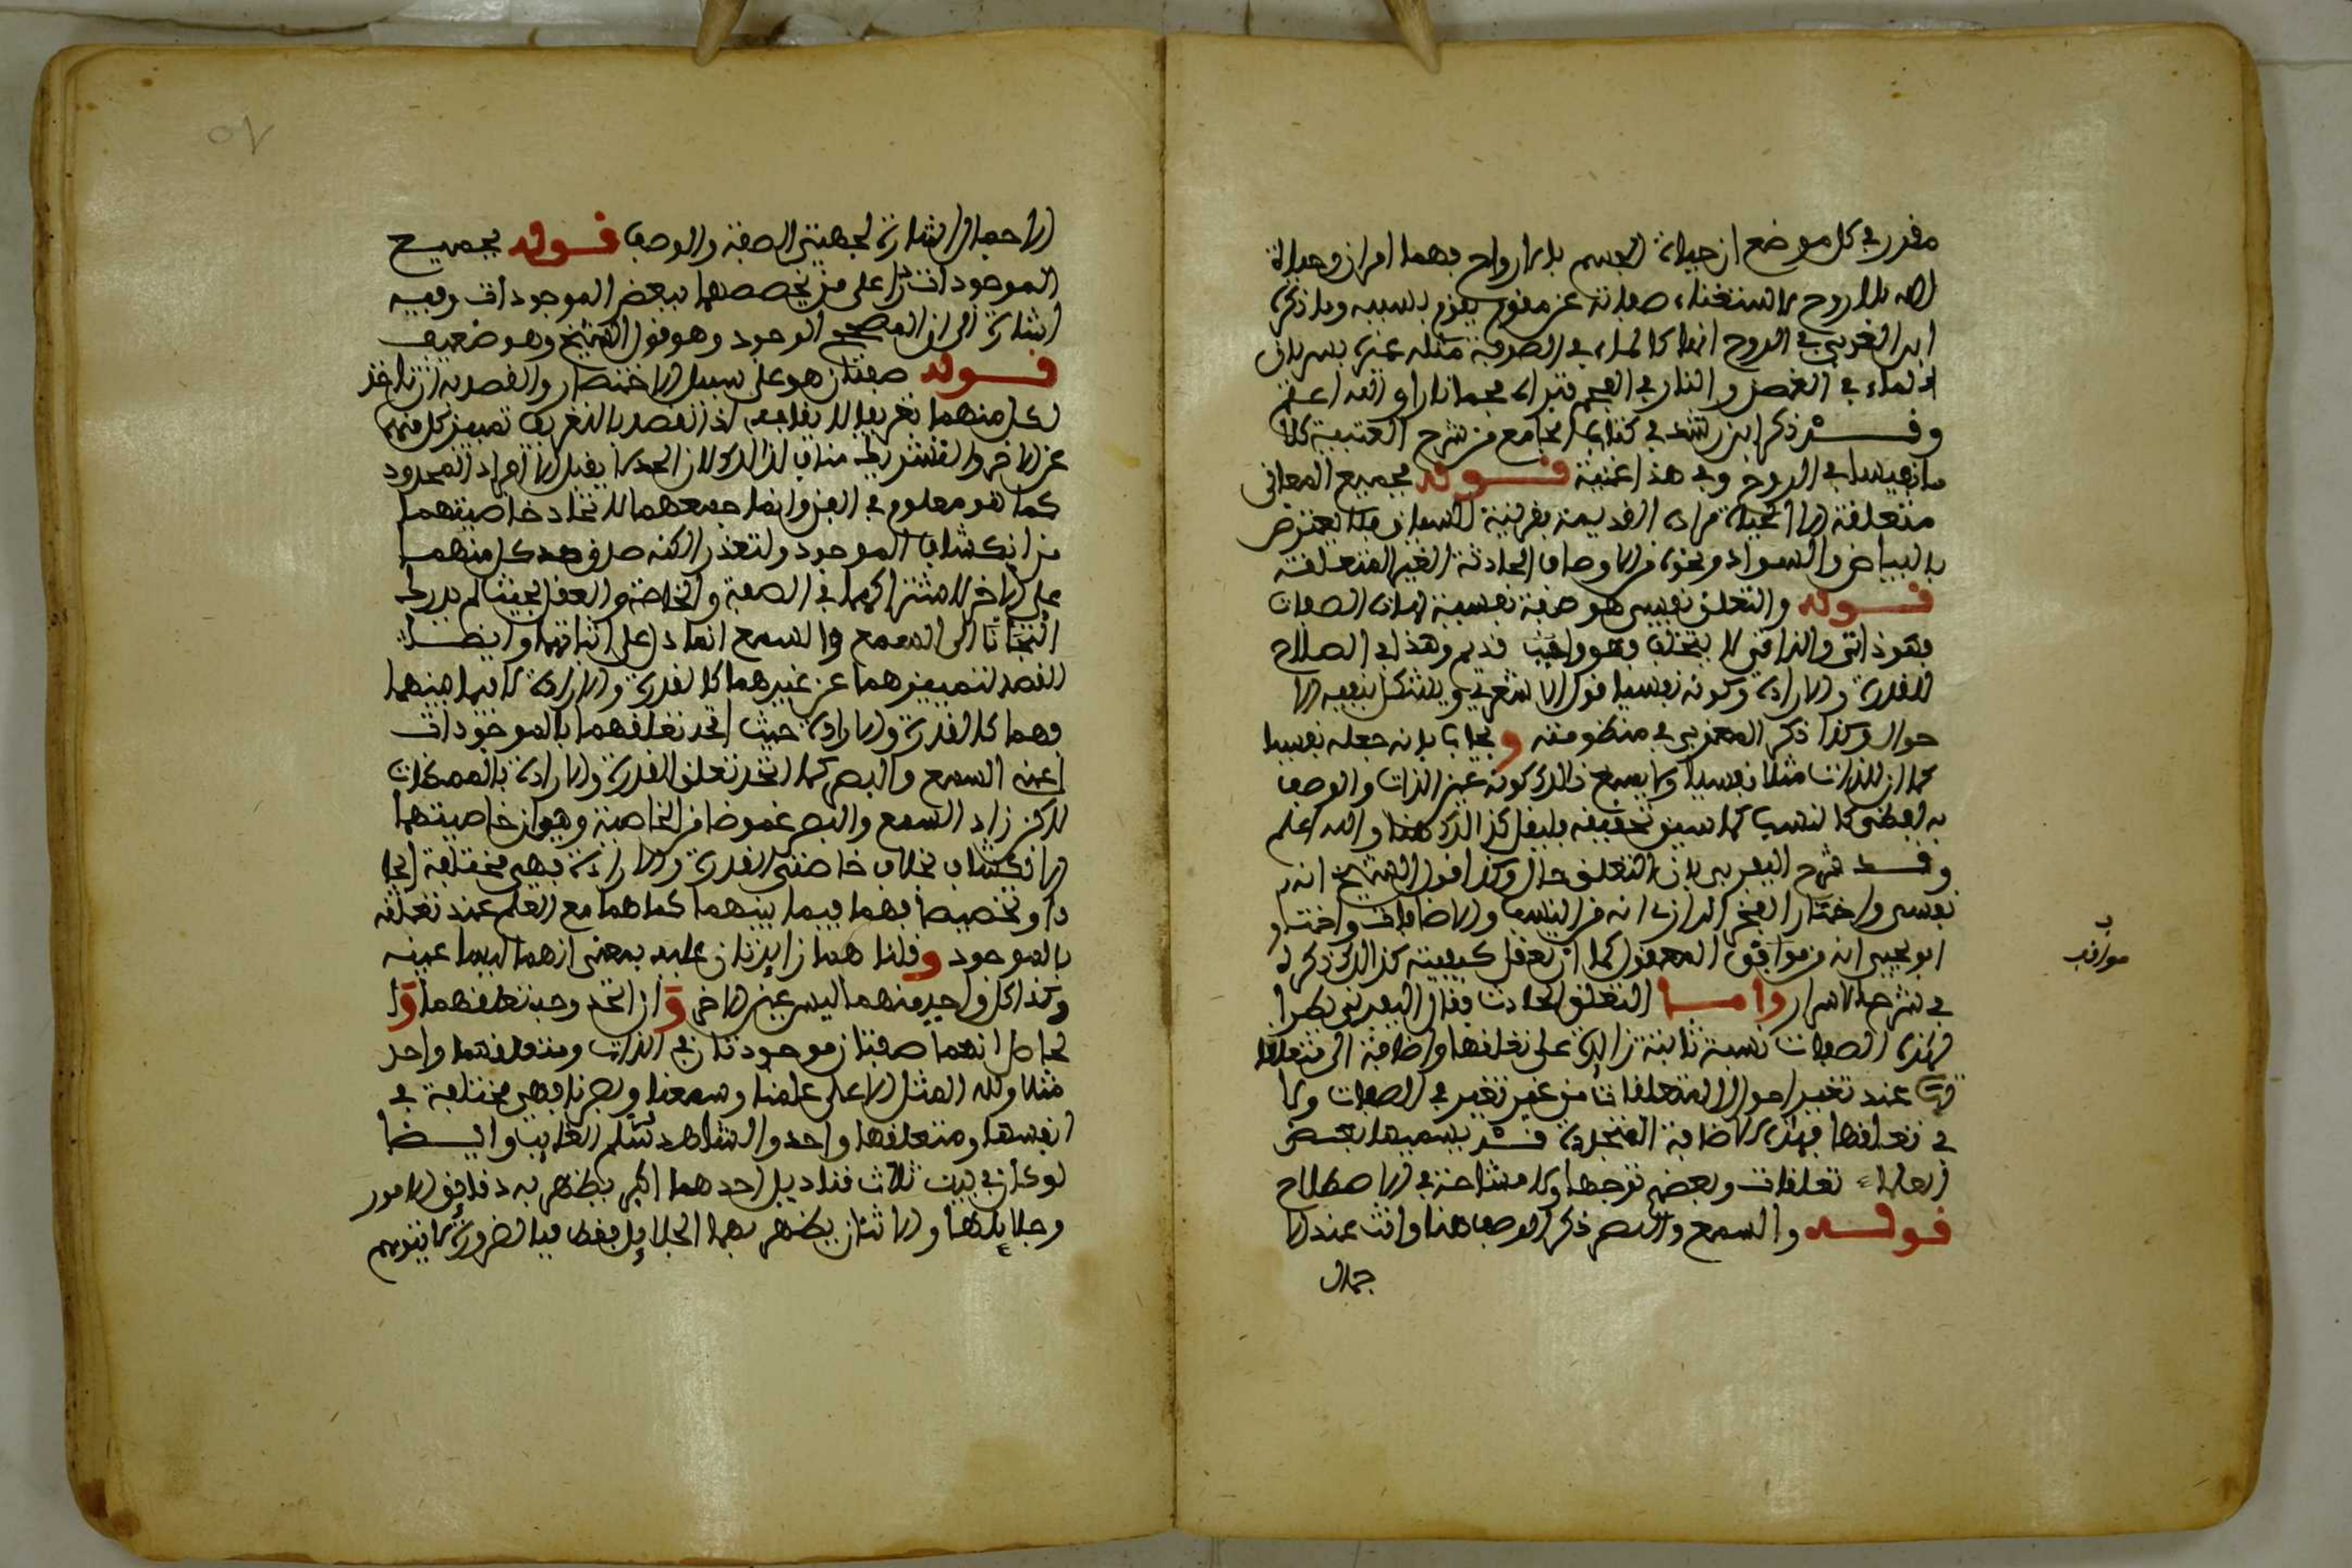 مقدر في كل موضع ان حياة الجسم بالارواح فهما امران وحياة
الله بلا روح لاستغناء صفاته عن مقوم يقوم بسببه وما ذكره
ابن العربي في الروح انها كالماء في الصوفة مثله غيره بسريان
الماء في الغصن والنار في الفحم فتراه فحما نارا والله اعلم
وقد ذكر ابن رشد في كتاب الجامع من شرح العتبية كلاما
نفيسا في الروح وفي هذا غنية قوله بجميع المعاني
متعلقة الا الحياة مراده القديمة بقرينة السياق فلا يعترض
بالبياض والسواد ونحوه من الاوصاف الحادثة الغير المتعلقة
قوله والتعلق نفسي هو صفة نفسية لهاته الصفات
فهو ذاتي والذاتي لا يتخلف وهو واجب قديم وهذا في الصلاح
للقدرة والارادة وكونه نفسيا قول الاشعري ويشكل بنفيه الا
حوال وكذا ذكر المغربي في منظومته ويجاب بانه جعله نفسيا
كما ان للذات مثلا نفسيا ولا يسع ذلك كونه عين الذات والوصف
به لفظي كالنسب كما سبق تحقيقه فليقل كذلك هنا والله اعلم
وقد شرح اليفرني بان التعلق حال وكذا قول الشيخ انه
نفسي واختار الفخر الرازي انه من النسب والاضافات واختار
ابو يحيى انه من مواقف العقول كما لا تعقل كيفيته كذلك ذكره
في شرح الاسرار واما التعلق الحادث فقال اليفرني يطرا
لهذه الصفات نسبة ثابتة زائدة على تعلقها واضافة الى متعلقا
تها عند تغير احوال المتعلقات من غير تغير في الصفات ولا
في تعلقها فهذه الاضافة المتجددة قد يسميها بعض
العلماء تعلقات وبعضهم توجها ولا مشاحة في الاصطلاح
قوله والسمع والبصر ذكر الوصف هنا وانث عند الا
جمال
مواقف
٥٧
الاجمال اشارة لجهتي الصفة والوصف قوله بجميع
الموجودات رد على من يخصصهما ببعض الموجودات وفيه
اشارة الى ان المصحح الوجود وهو قول الشيخ وهو ضعيف
قوله صفتان هو على سبيل الاختصار والقصد به ان ناخذ
لكل منهما تعريفا لا يقابله اذ القصد بالتعريف تمييز كل منهما
عن الاخر والتشريك مناف لذلك ولان الحد لا يقبل الا افراد المحدود
كما هو معلوم في الفن وانما جمعهما لاتحاد خاصيتهما
من انكشاف الموجود ولتعذر الكنه صدق حد كل منهما
على الاخر لاشتراكهما في الصفة والخاصة والعقل بحيث لم يدرك
التجانا الى السمع والسمع انما دل على اثباتهما وايضا
القصد لتمييزهما عن غيرهما كالقدرة والارادة لا فيما بينهما
فهما كالقدرة والارادة حيث اتحد تعلقهما بالموجودات
اعني السمع والبصر كما اتحد تعلق القدرة والارادة بالممكنات
لاكن زاد السمع والبصر غموضا في الخاصية وهو ان خاصيتهما
الانكشاف بخلاف خاصتي القدرة والارادة فهي مختلفة ايجا
دا وتخصيصا فهما فيما بينهما كماهما مع العلم عند تعلقه
بالموجود وقلنا هما زايدتان عليه بمعنى انهما ليسا عينه
وكذا كل واحد منهما ليس عين الاخر وان اتحد وجه تعلقهما وا
لحاصل انهما صفتان موجودتان في الذات ومتعلقهما واحد
مثلا ولله المثل الاعلى علمنا وسمعنا وبصرنا فهي مختلفة في
انفسها ومتعلقها واحد والشاهد سلم الغايب وايضا
لو كان في بيت ثلاث قناديل احدهما اكبر يظهر به دقايق الامور
وجلايلها والاثنان يظهر بهما الجلايل فقط فبالضرورة لا يتوهم